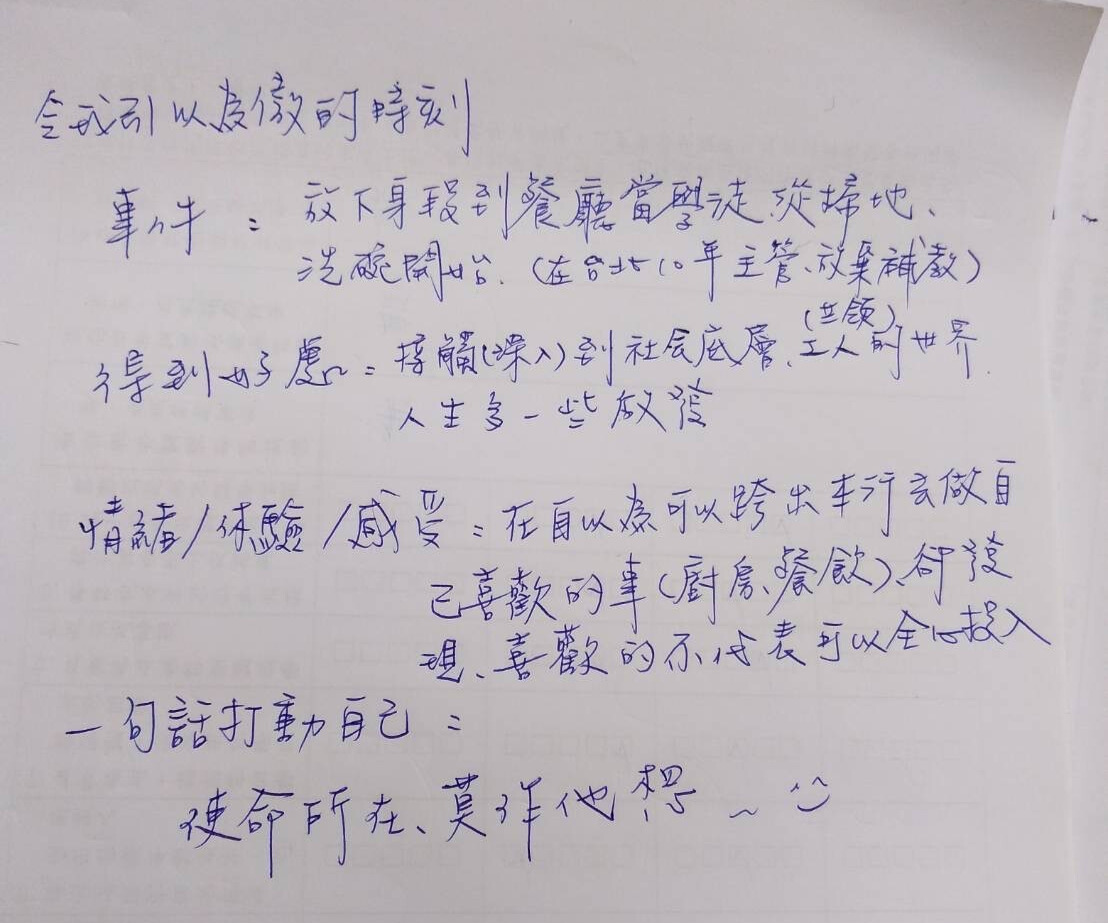 令我引以為傲的時刻
事件：放下身段到餐廳當學徒、從掃地、
洗碗開始.(在台北10年主管、放棄補教)
(藍領)
得到好處：接觸(深入)到社会底層、工人的世界.
人生多一些啟發
情緒/体驗/感受：在自以為可以跨出本行去做自
己喜歡的事(廚房、餐飲)、卻發
現、喜歡的不代表可以全心投入
一句話打動自己：
使命所在、莫作他想~